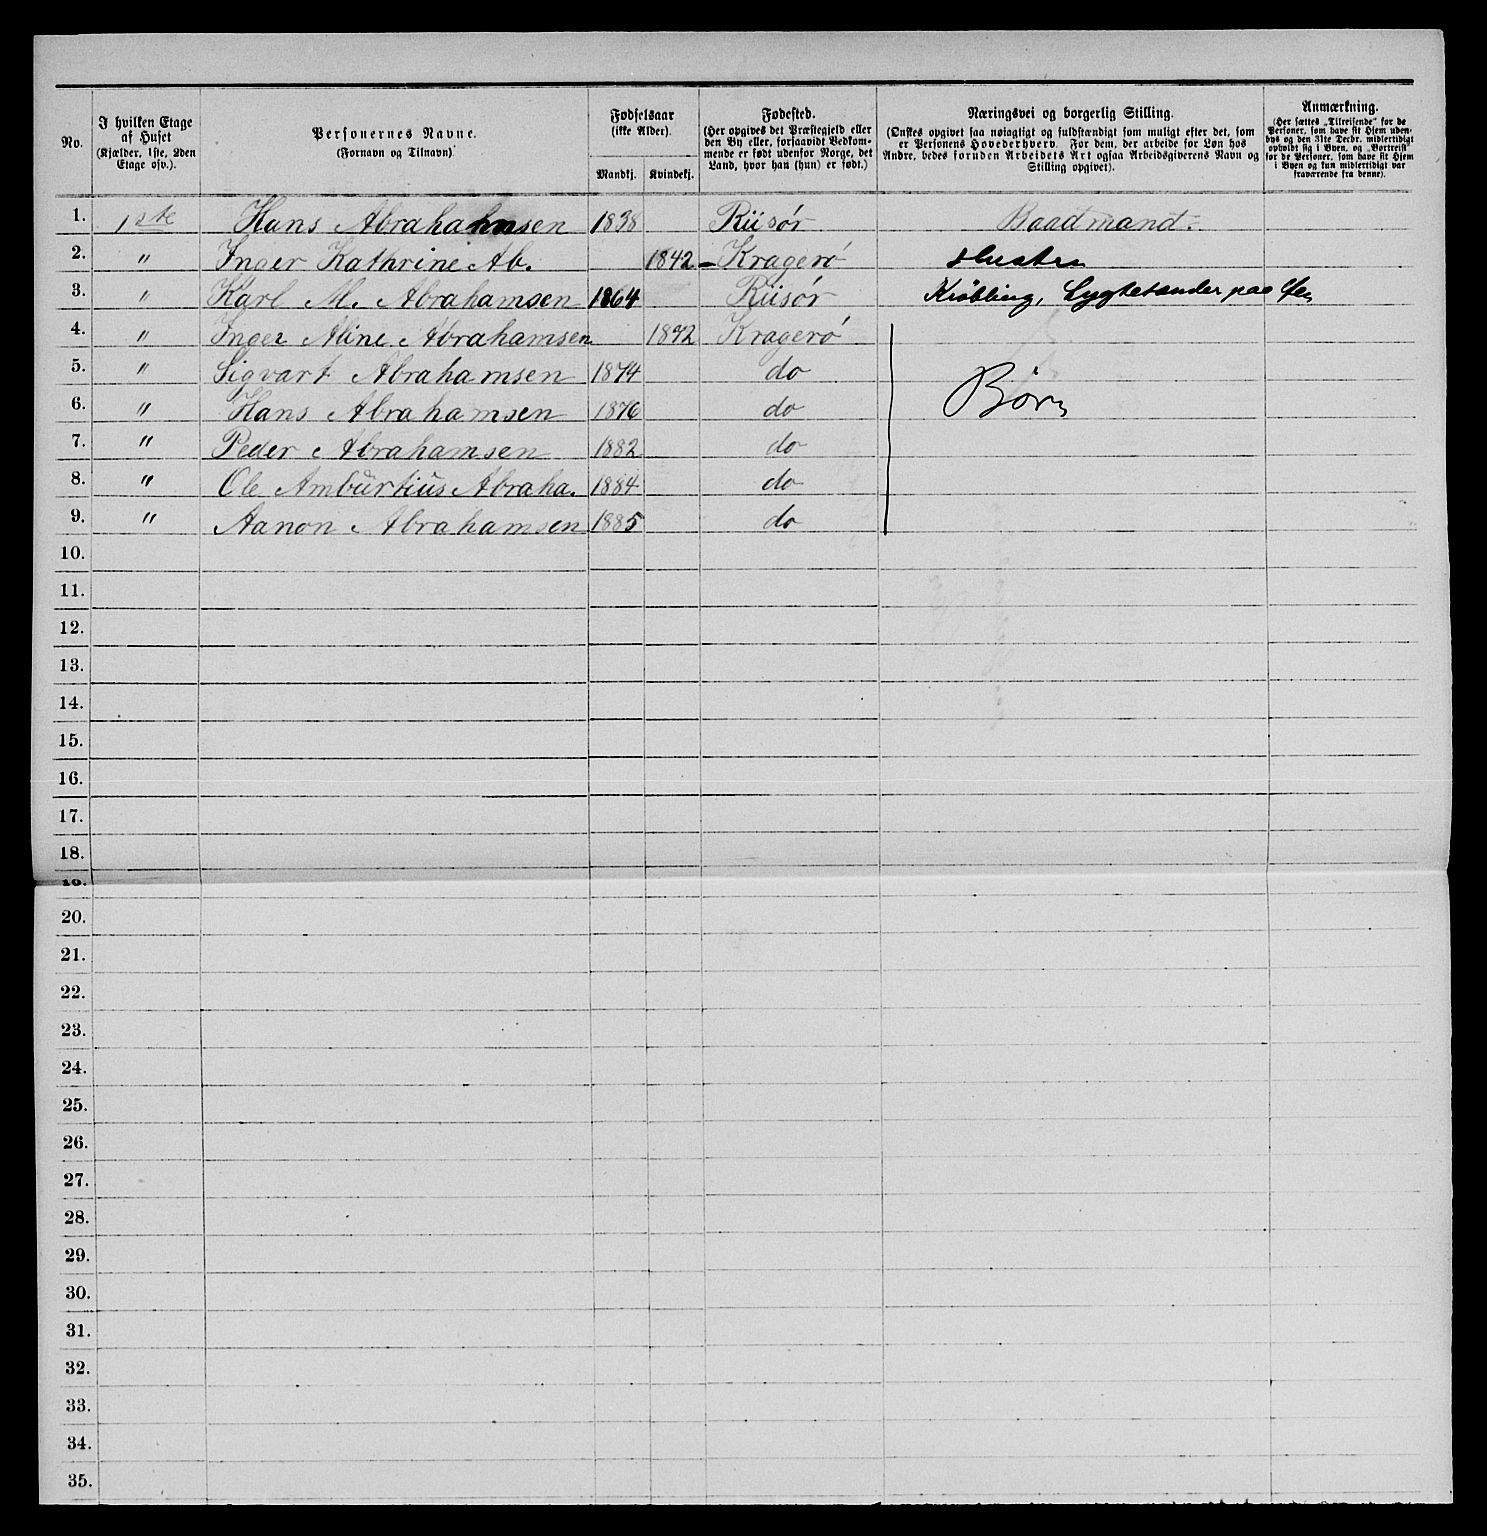 No.
I hvilken Etage af Huset (Kjælder, 1ste, 2den Etage osv.).
Personernes Navne. (Fornavn og Tilnavn)
Fødselsaar (ikke Alder).
Mandkj. Kvindekj.
Fødested. (Her opgives det Præstegjeld eller den By eller, forsaavidt Vedkommende er født udenfor Norge, det Land, hvor han (hun) er født.)
Næringsvei og borgerlig Stilling. (Ønskes opgivet saa nøiagtigt og fuldstændigt som muligt efter det, som er Personens Hovederhverv. For dem, der arbeide for Løn hos Andre, bedes foruden Arbeidets Art ogsaa Arbeidsgiverens Navn og Stilling opgivet).
Anmærkning. (Her sættes „Tilreisende" for de Personer, som have sit Hjem udenbys og den 31te Decbr. midlertidigt opholdt sig i Byen, og „Bortreist" for de Personer, som have sit Hjem i Byen og kun midlertidigt var fraværende fra denne).
1. 1ste Hans Abrahamsen 1838 Riisór Baadmand.
2. " Inger Kathrine Ab. 1842 Krageró Hustru
3. " Karl M. Abrahamsen 1864 Riisór Krøbling, Lygtetænder paa
4. " Inger Aline Abrahamsen 1872 Krageró
5. " Sigvart Abrahamsen 1874 do
6. " Hans Abrahamsen 1876 do Børn
7. " Peder Abrahamsen 1882 do
8. " Ole Amburtius Abraha. 1884 do
9. " Aanon Abrahamsen 1885 do
10.
11.
12.
13.
14.
15.
16.
17.
18.
19.
20.
21.
22.
23.
24.
25.
26.
27.
28.
29.
30.
31.
32.
33.
34.
35.